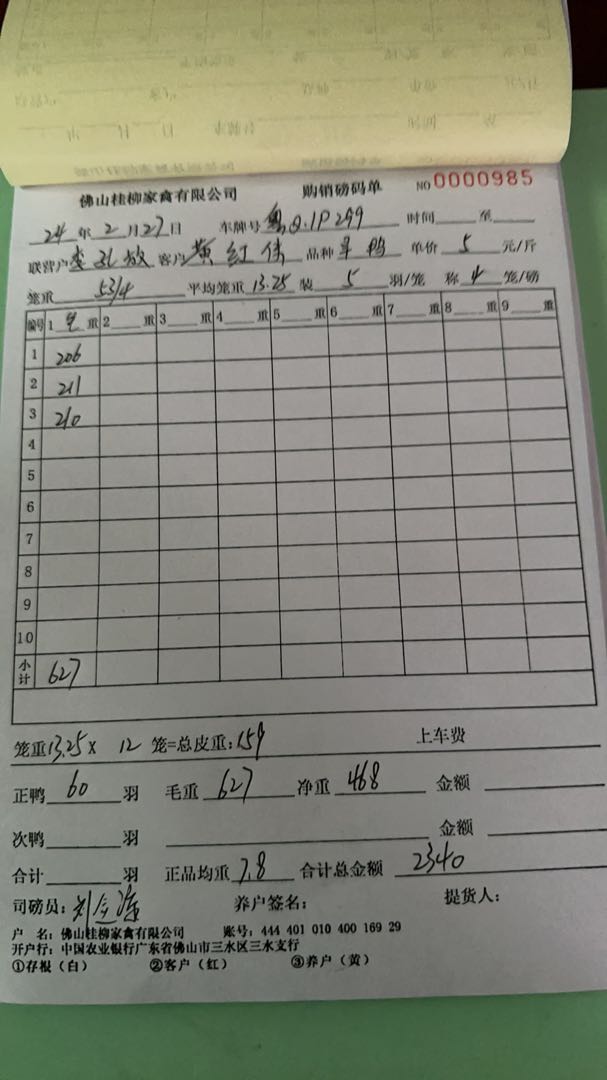 佛山桂柳家禽有限公司 购销磅码单 NO 0000985
24年2月27日 车牌号粤Q.1P299 时间 至
联营户 客户黄红伟 品种旱鸭 单价5元/斤
笼重53/4 平均笼重13.25 装5羽/笼 称4笼/磅
编号 1毛重 2 重 3 重 4 重 5 重 6 重 7 重 8 重 9 重
1 206
2 211
3 210
4
5
6
7
8
9
10
小计 627
笼重13.25× 12笼=总皮重:159 上车费
正鸭60羽 毛重627 净重468 金额
次鸭 羽 金额
合计 羽 正品均重7.8 合计总金额2340
司磅员: 养户签名: 提货人:
户 名:佛山桂柳家禽有限公司 账号:444 401 010 400 169 29
开户行:中国农业银行广东省佛山市三水区三水支行
①存根(白) ②客户(红) ③养户(黄)